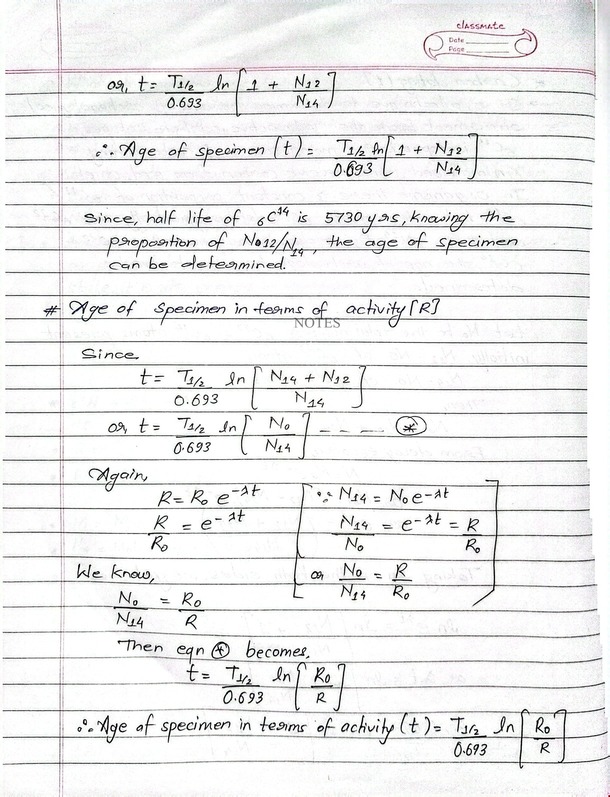 classmate
Date
Page
or, t = T1/2/0.693 ln [1 + N12/N14]
∴ Age of specimen (t) = T1/2/0.693 ln [1 + N12/N14]
Since, half life of ₆C¹⁴ is 5730 yrs, knowing the
proportion of N12/N14, the age of specimen
can be determined.
# Age of specimen in terms of activity [R]
NOTES
Since
t = T1/2/0.693 ln [N14 + N12/N14]
or t = T1/2/0.693 ln [N0/N14] ---- (*)
Again,
R = R0 e^-λt
R/R0 = e^-λt
[∵ N14 = N0 e^-λt
N14/N0 = e^-λt = R/R0
or N0/N14 = R/R0]
We know,
N0/N14 = R0/R
Then eqn (*) becomes,
t = T1/2/0.693 ln [R0/R]
∴ Age of specimen in terms of activity (t) = T1/2/0.693 ln [R0/R]